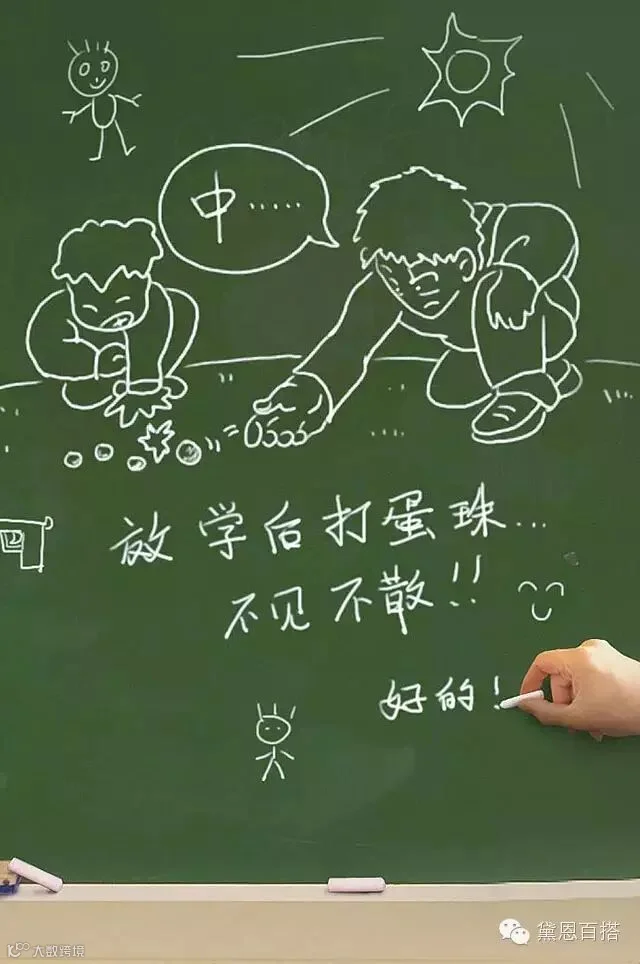 中……
放学后打蛋珠…
不见不散!!
好的!
K¹⁰⁰ 大数跨境
黛恩百搭